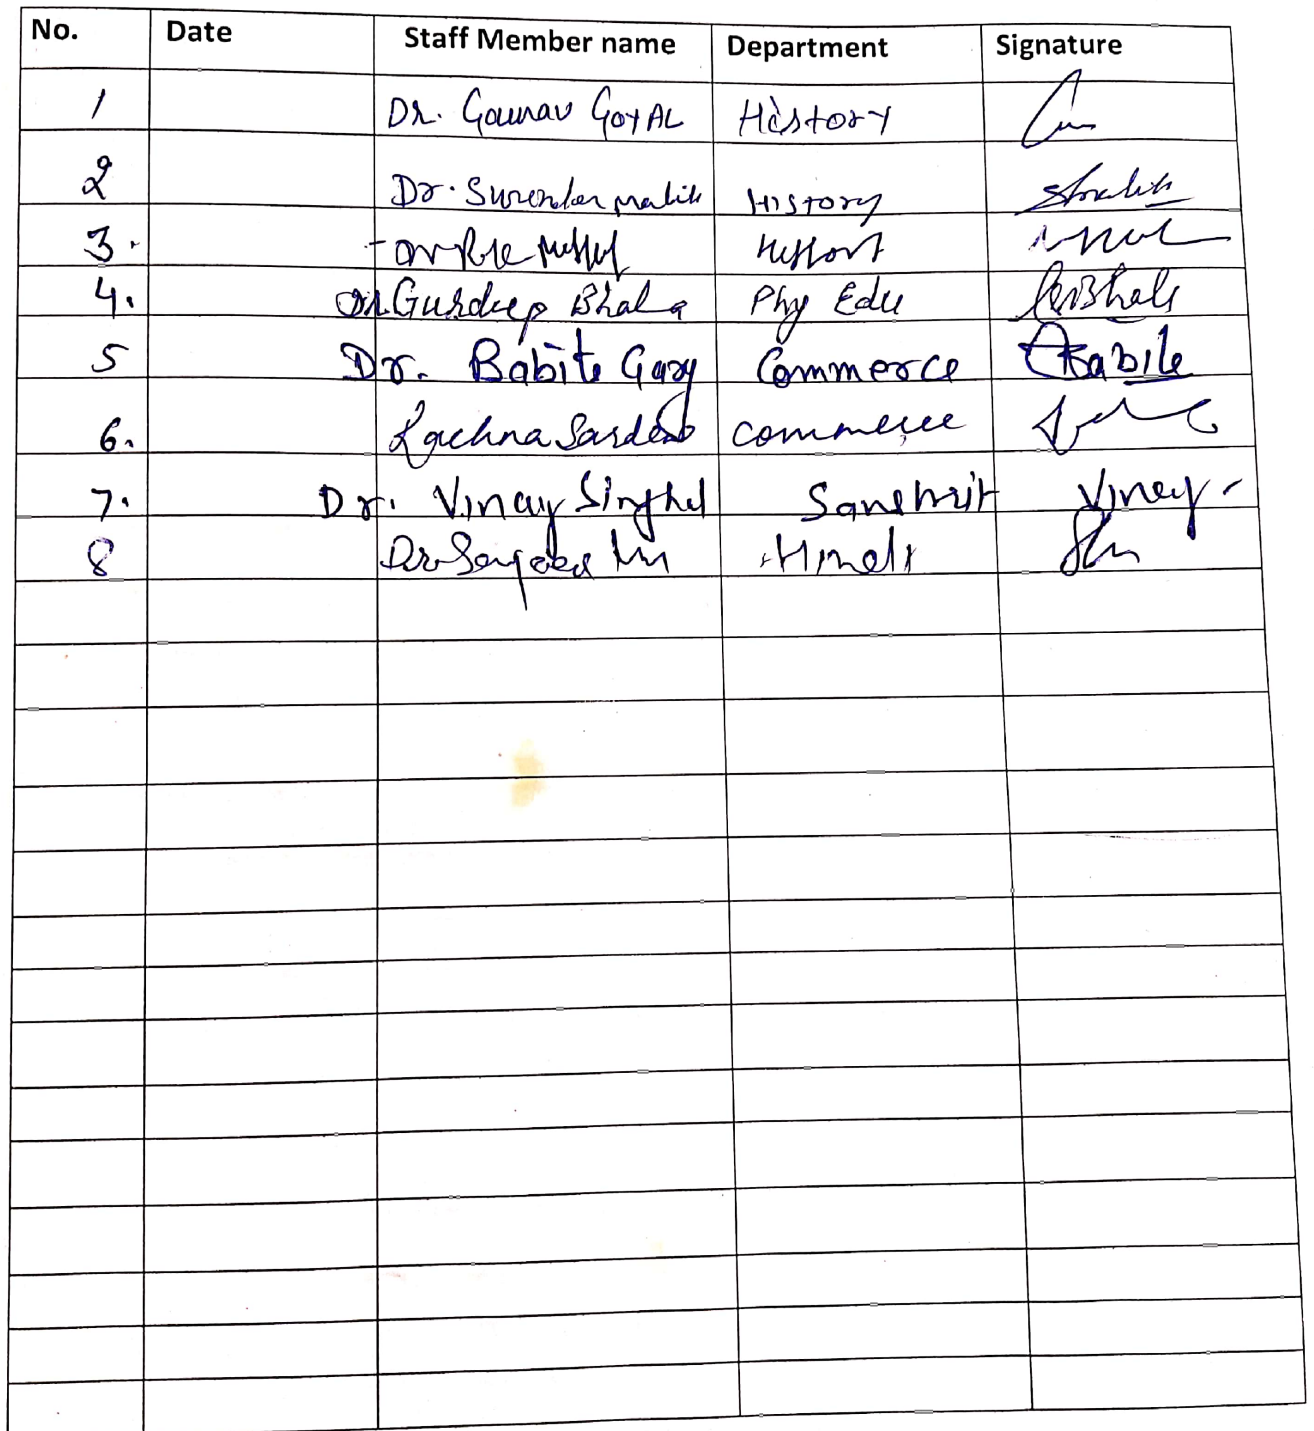 No. Date Staff Member name Department Signature
1 Dr. Gaurav GOYAL History
2 Dr. Surender malik History
3.
4. Dr. Gurdeep Bhala Phy Edu
5 Dr. Babita Garg Commerce Babita
6. Rachna Sardana commerce
7. Dr. Vinay Singhal Sanskrit Vinay
8 Dr. Hindi